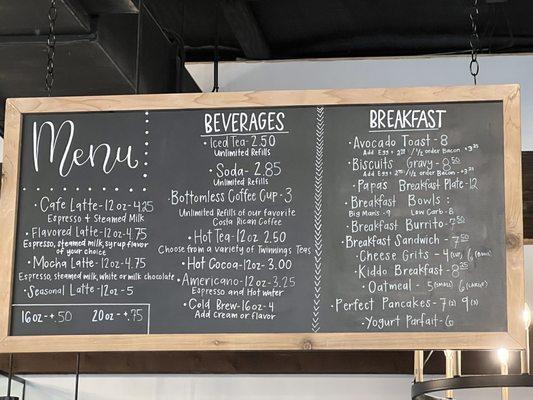 Menu
· Cafe Latte-12oz-4.25
Espresso + Steamed Milk
· Flavored Latte-12oz-4.75
Espresso, steamed milk, syrup flavor
of your choice
· Mocha Latte-12oz-4.75
Espresso, steamed milk, white or milk chocolate
· Seasonal Latte-12oz-5
16oz-+.50 20oz-+.75
BEVERAGES
· Iced Tea-2.50
Unlimited Refills
· Soda-2.85
Unlimited Refills
· Bottomless Coffee Cup-3
Unlimited Refills of our favorite
Costa Rican Coffee
· Hot Tea-12oz 2.50
Choose from a variety of Twinnings Teas
· Hot Cocoa-12oz-3.00
· Americano-12oz-3.25
Espresso and Hot water
· Cold Brew-16oz-4
Add Cream or flavor
BREAKFAST
· Avocado Toast-8
Add Egg + 2.00 / 1/2 order Bacon + 3.25
· Biscuits Gravy-8.50
Add Egg + 2.00 / 1/2 order Bacon
· Papas Breakfast Plate-12
· Breakfast Bowls:
Big Mans-9 Low Carb-8
· Breakfast Burrito-7.50
· Breakfast Sandwich-7.50
· Cheese Grits-4 (cup) 6
· Kiddo Breakfast-8.25
· Oatmeal-5 (small) 6 (large)
· Perfect Pancakes-7(2) 9(3)
· Yogurt Parfait-6